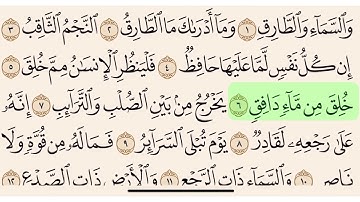 وَٱلسَّمَآءِ وَٱلطَّارِقِ ۝١ وَمَآ أَدۡرَىٰكَ مَا ٱلطَّارِقُ ۝٢ ٱلنَّجۡمُ ٱلثَّاقِبُ ۝٣
إِن كُلُّ نَفۡسٖ لَّمَّا عَلَيۡهَا حَافِظٞ ۝٤ فَلۡيَنظُرِ ٱلۡإِنسَٰنُ مِمَّ خُلِقَ ۝٥
خُلِقَ مِن مَّآءٖ دَافِقٖ ۝٦ يَخۡرُجُ مِنۢ بَيۡنِ ٱلصُّلۡبِ وَٱلتَّرَآئِبِ ۝٧ إِنَّهُۥ
عَلَىٰ رَجۡعِهِۦ لَقَادِرٞ ۝٨ يَوۡمَ تُبۡلَى ٱلسَّرَآئِرُ ۝٩ فَمَا لَهُۥ مِن قُوَّةٖ وَلَا
نَاصِرٖ ۝١٠ وَٱلسَّمَآءِ ذَاتِ ٱلرَّجۡعِ ۝١١ وَٱلۡأَرۡضِ ذَاتِ ٱلصَّدۡعِ ۝١٢